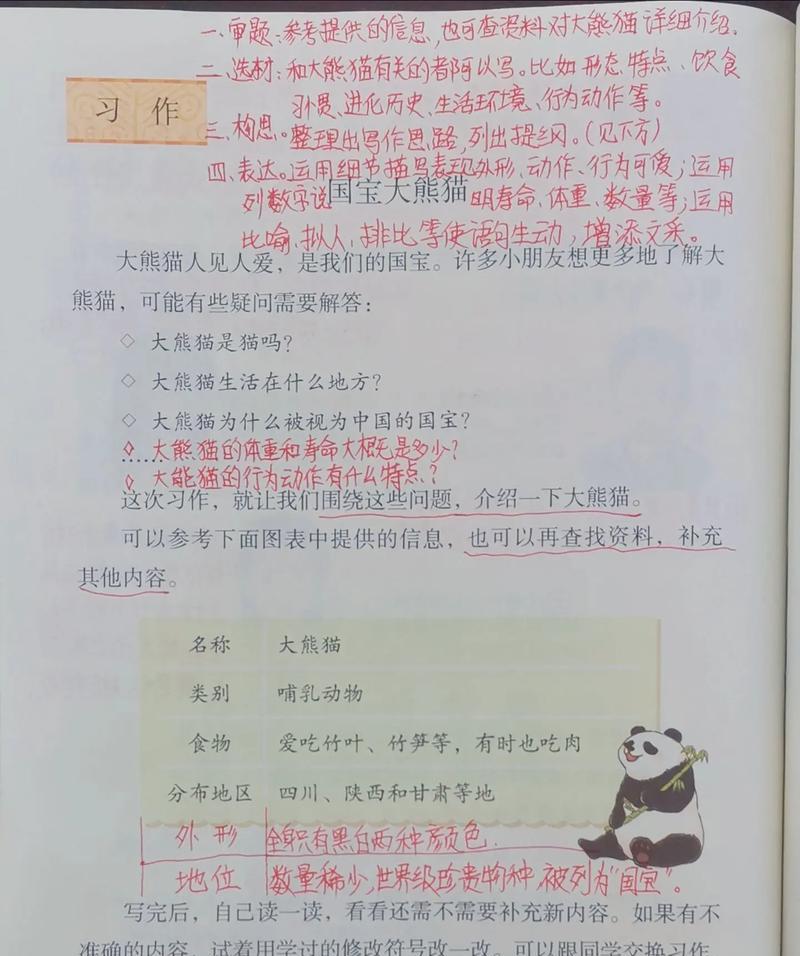 一、审题:参考提供的信息,也可查资料对大熊猫详细介绍。
二、选材:和大熊猫有关的都可以写。比如形态特点、饮食
习惯、进化历史、生活环境、行为动作等。
习 作
三、构思。整理出写作思路,列出提纲。(见下方)
四、表达。运用细节描写表现外形、动作、行为可爱;运用
列数字说明寿命、体重、数量等;运用
国宝大熊猫
比喻、拟人、排比等使语句生动,增添文采。
大熊猫人见人爱,是我们的国宝。许多小朋友想更多地了解大
熊猫,可能有些疑问需要解答:
◇ 大熊猫是猫吗?
◇ 大熊猫生活在什么地方?
◇ 大熊猫为什么被视为中国的国宝?
◇ 大熊猫的体重和寿命大概是多少?
……
◇ 大熊猫的行为动作有什么特点?
这次习作,就让我们围绕这些问题,介绍一下大熊猫。
可以参考下面图表中提供的信息,也可以再查找资料,补充
其他内容。
名称 大熊猫
类别 哺乳动物
食物 爱吃竹叶、竹笋等,有时也吃肉
分布地区 四川、陕西和甘肃等地
外形 全身只有黑白两种颜色.
地位 数量稀少,世界级珍贵物种,被列为“国宝”。
写完后,自己读一读,看看还需不需要补充新内容。如果有不
准确的内容,试着用学过的修改符号改一改。可以跟同学交换习作